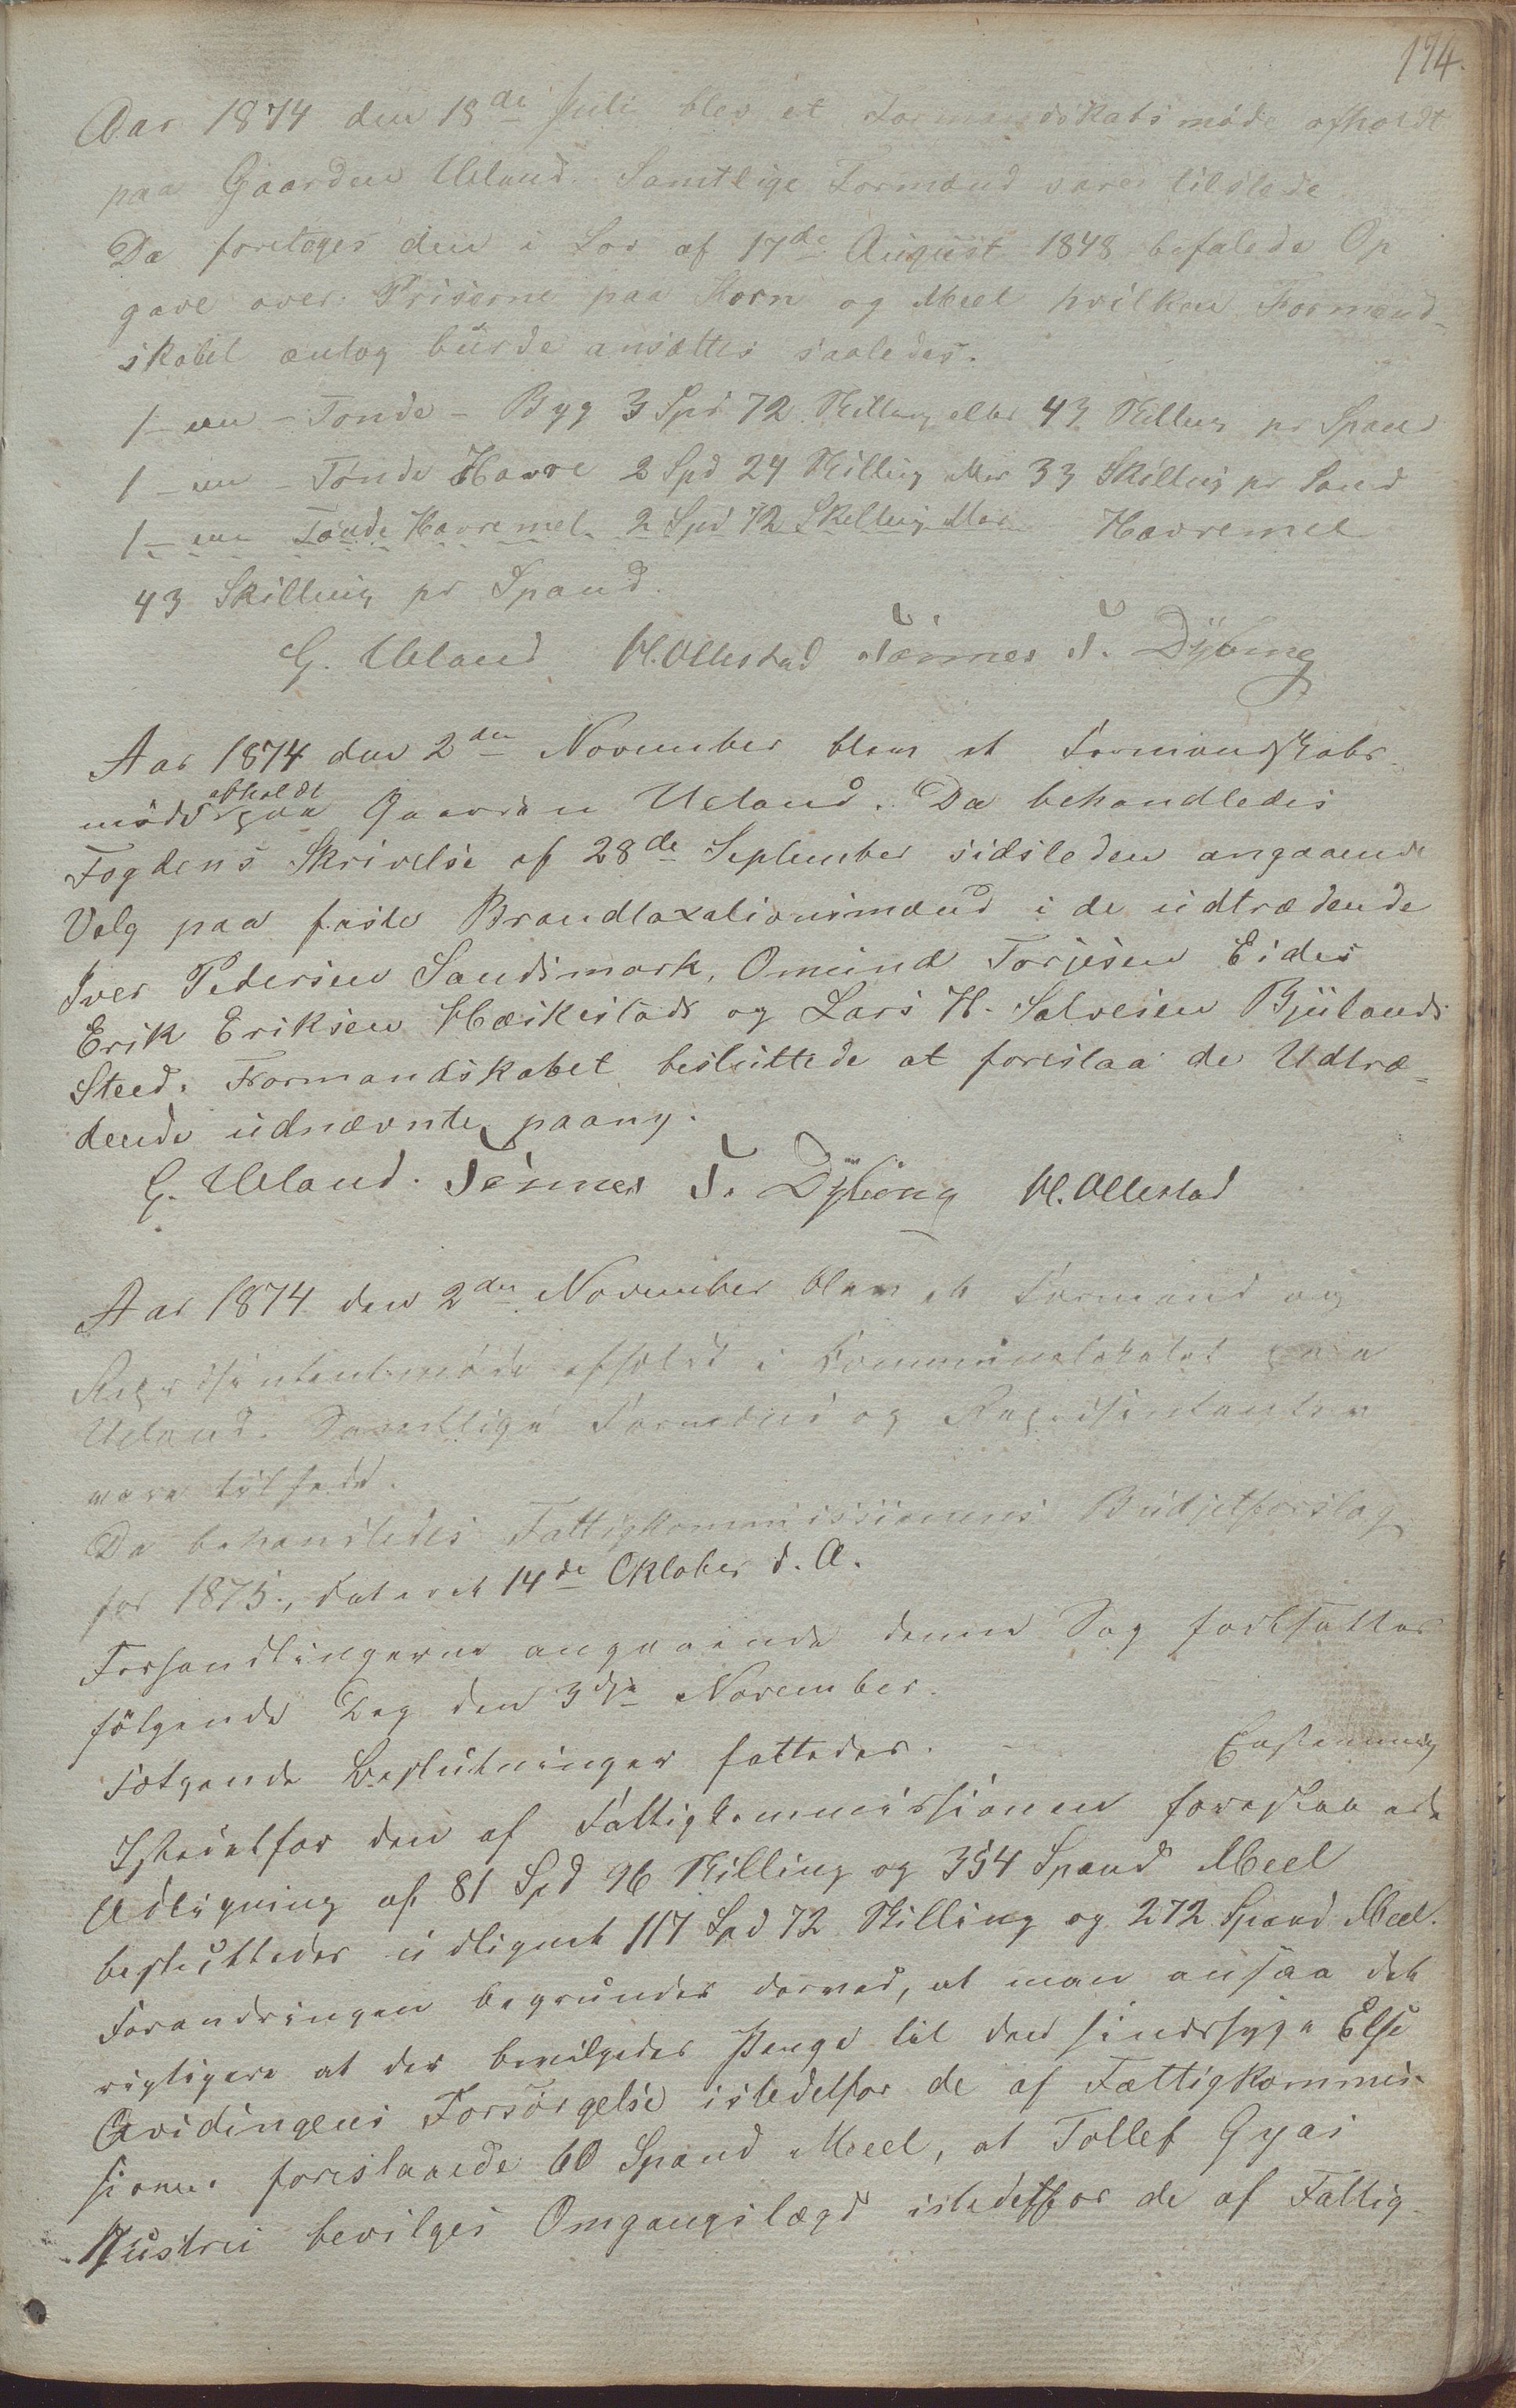 194.
Aar 1874 den 18de Juli blev et Formandskabsmøde afholdt
paa Gaarden Ueland. Samtlige Formænd varer tilstede
Da foretoges den i Lov af 17de August 1848 befalede Op
gave over Priserne paa Korn og Meel hvilken Formænd-
skabet antog burde ansættes saaledes.
1 - en - Tønde - Byg 3 Spd 72 Skilling eller 43 Skilling pr Spand
1 - en - Tønde Havre 2 Spd 24 Skilling eller 33 Skilling pr Spand
1 - en Tønde Havremel 2 Spd 72 Skilling Havremel
43 Skilling pr Spand.
G. Ueland H. Ollestad Tønnes T. Dybing
Aar 1874 den 2den November blev et Formandskabs-
møde afholdt paa Gaarden Ueland. Da behandledes
Fogdens Skrivelse af 28de September sidsleden angaaende
Valg paa faste Brandtaxationsmænd i de udtrædende
Iver Pedersen Sandsmark, Omund Torjesen Eides
Erik Eriksen Hæskestads og Lars H. Salvesen Bjulands
Steed. Formandskabet besluttede at foreslaa de Udtræ-
dende udnævnte paany.
G. Ueland. Tønnes T. Dybing H. Ollestad
Aar 1874 den 2den November blev et Formand og
Repræsentantmøde afholdt i Kommunelokalet paa
Ueland. Samtlige Formænd og Repræsentanter
vare tilstede.
Da behandledes Fattigkommissionens Budjetforslag
for 1875, dateret 14de Oktober d. A.
Forhandlingerne angaaende denne Sag fortsattes
følgende Dag den 3die November.
Følgende Beslutninger fattedes. Enstemmig
Istedetfor den af Fattigkommissionen foreslaaede
Udligning af 81 Spd 96 Skilling og 354 Spand Meel
besluttedes udlignet 117 Spd 72 Skilling og 272 Spand Meel.
Forandringen begrundes derved, at man ansaa det
rigtigere at der bevilgedes Penge til den sindssyge Else
Ovidingens Forsørgelse istedetfor de af Fattigkommis-
sionen foreslaaede 60 Spand Meel, at Tollef Gyas
Hustru bevilges Omgangslægd istedetfor de af Fattig-